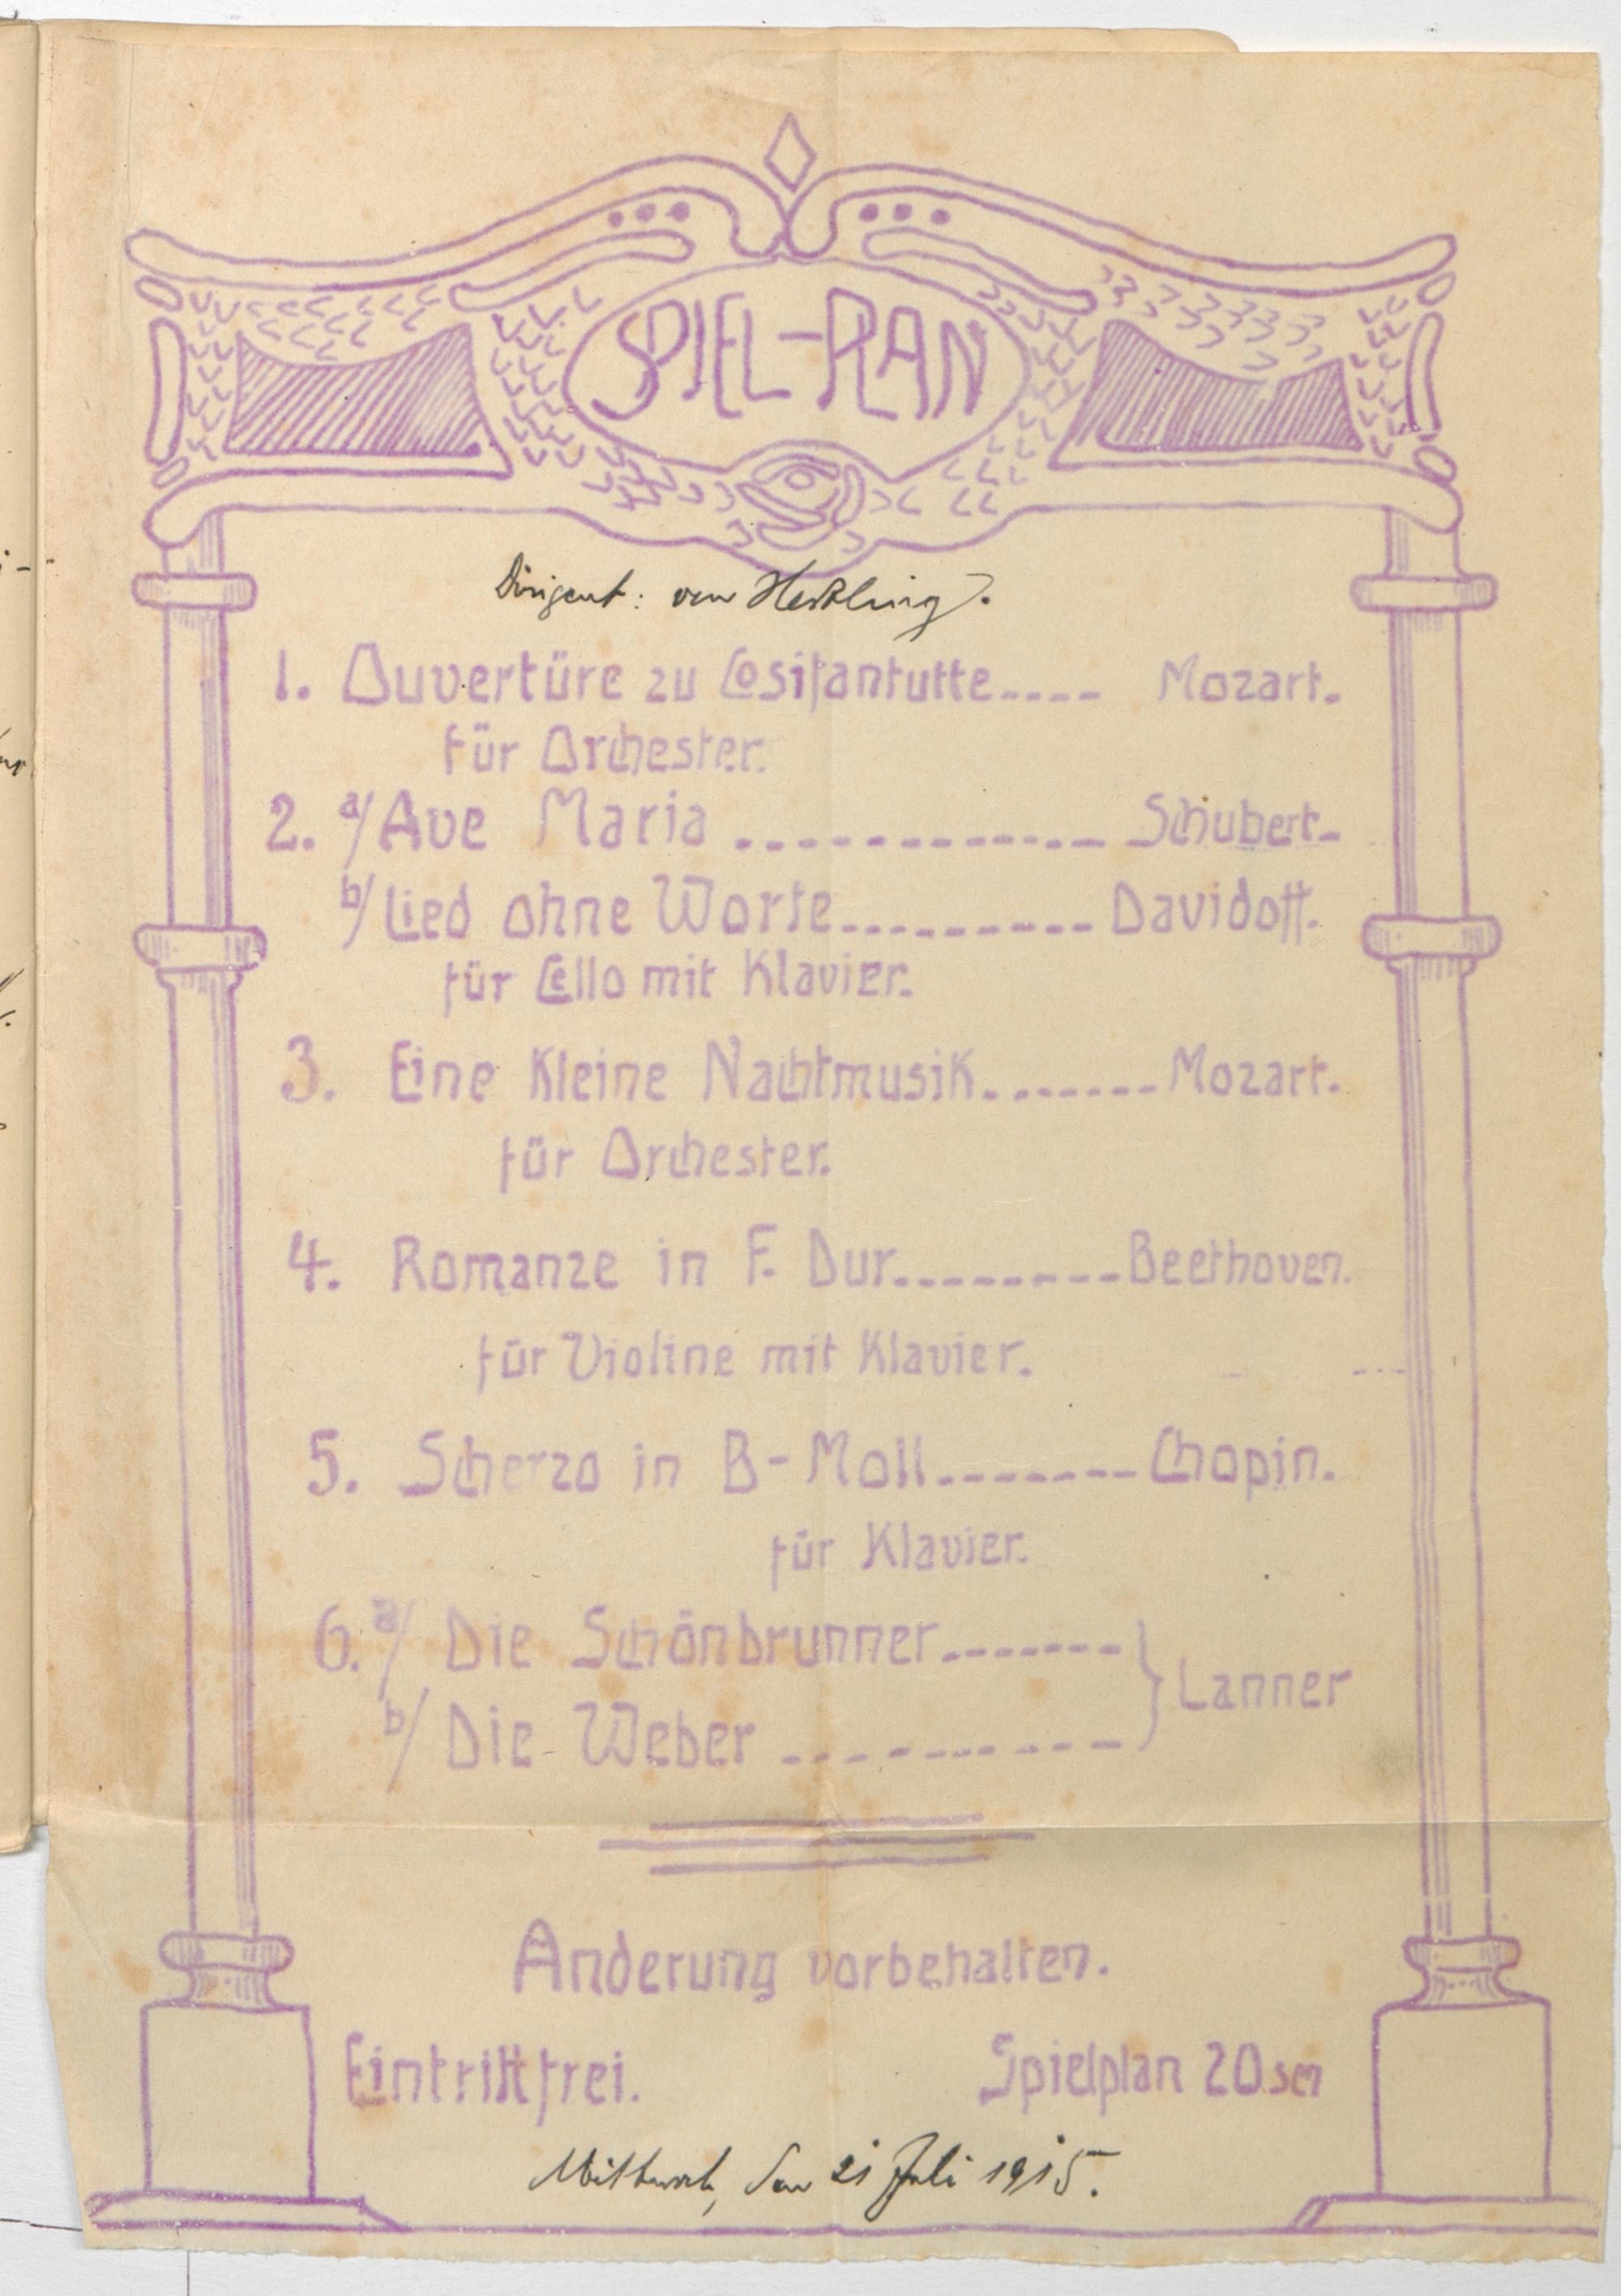 SPIEL-PLAN
Dirigent: von Hertling.
1. Ouvertüre zu Cosifantutte---- Mozart.
für Orchester.
2. a/ Ave Maria ------------ Schubert.
b/ Lied ohne Worte---------- Davidoff.
für Cello mit Klavier.
3. Eine Kleine Nachtmusik------- Mozart.
für Orchester.
4. Romanze in F. Dur--------- Beethoven.
für Violine mit Klavier.
5. Scherzo in B-Moll------- Chopin.
für Klavier.
6. a/ Die Schönbrunner-------
b/ Die Weber ---------- } Lanner
Anderung vorbehalten.
Eintritt frei. Spielplan 20 sen
Mittwoch, den 21 Juli 1915.